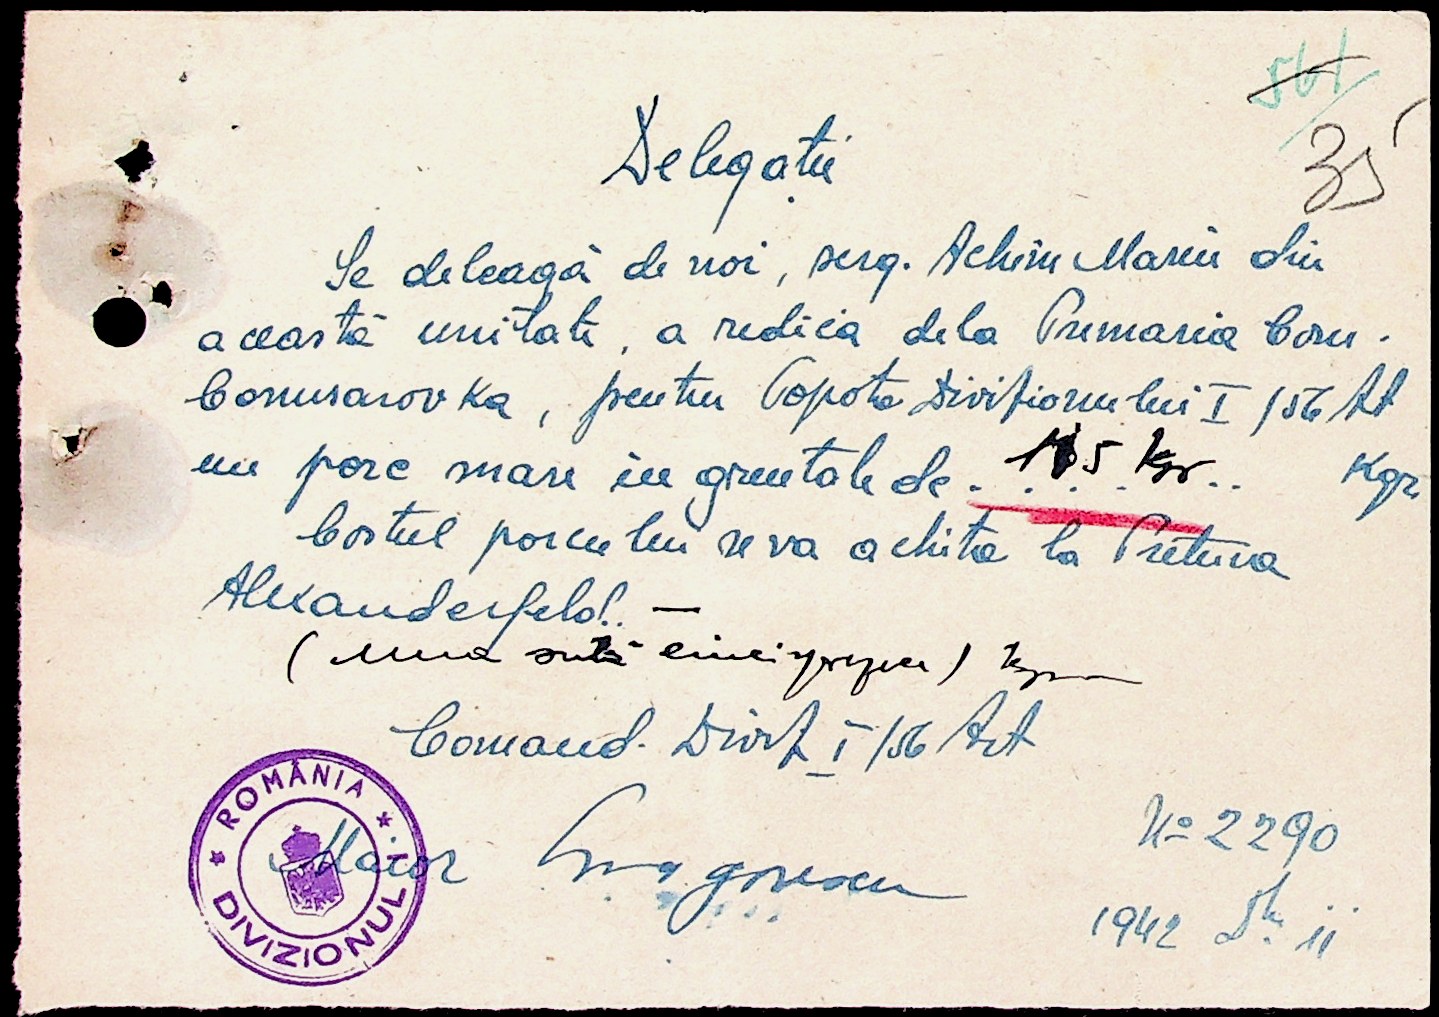 561
35
Delegație
Se deleagă de noi, serg. Achim Marin din
această unitate, a ridica dela Primaria Com.
Comisarovka, pentru Popota Divizionului I /56 Art
un porc mare în greutate de . 115 kgr. . Kgr.
Costul porcului se va achita la Pretura
Alexanderfeld. —
(una sută cincisprezece) kgr
Comand. Divz I /56 Art
Maior
ROMÂNIA
DIVIZIONUL I
No 2290
1942 11